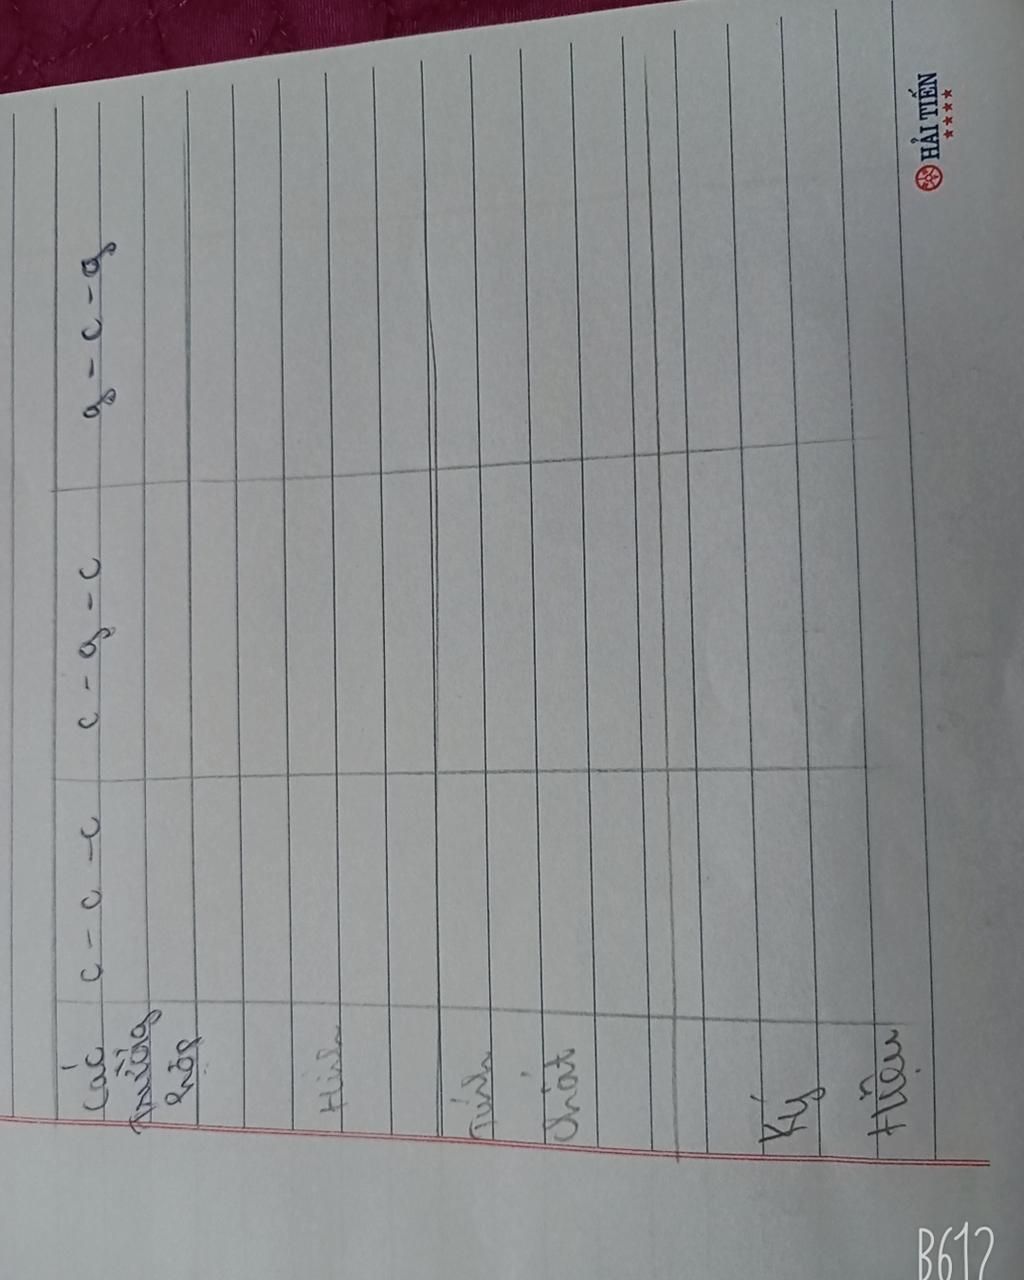 Các c - c - c c - g - c g - c - g
Trường
hợp
Hình
Tính
chất
Ký
Hiệu
HẢI TIẾN
B612